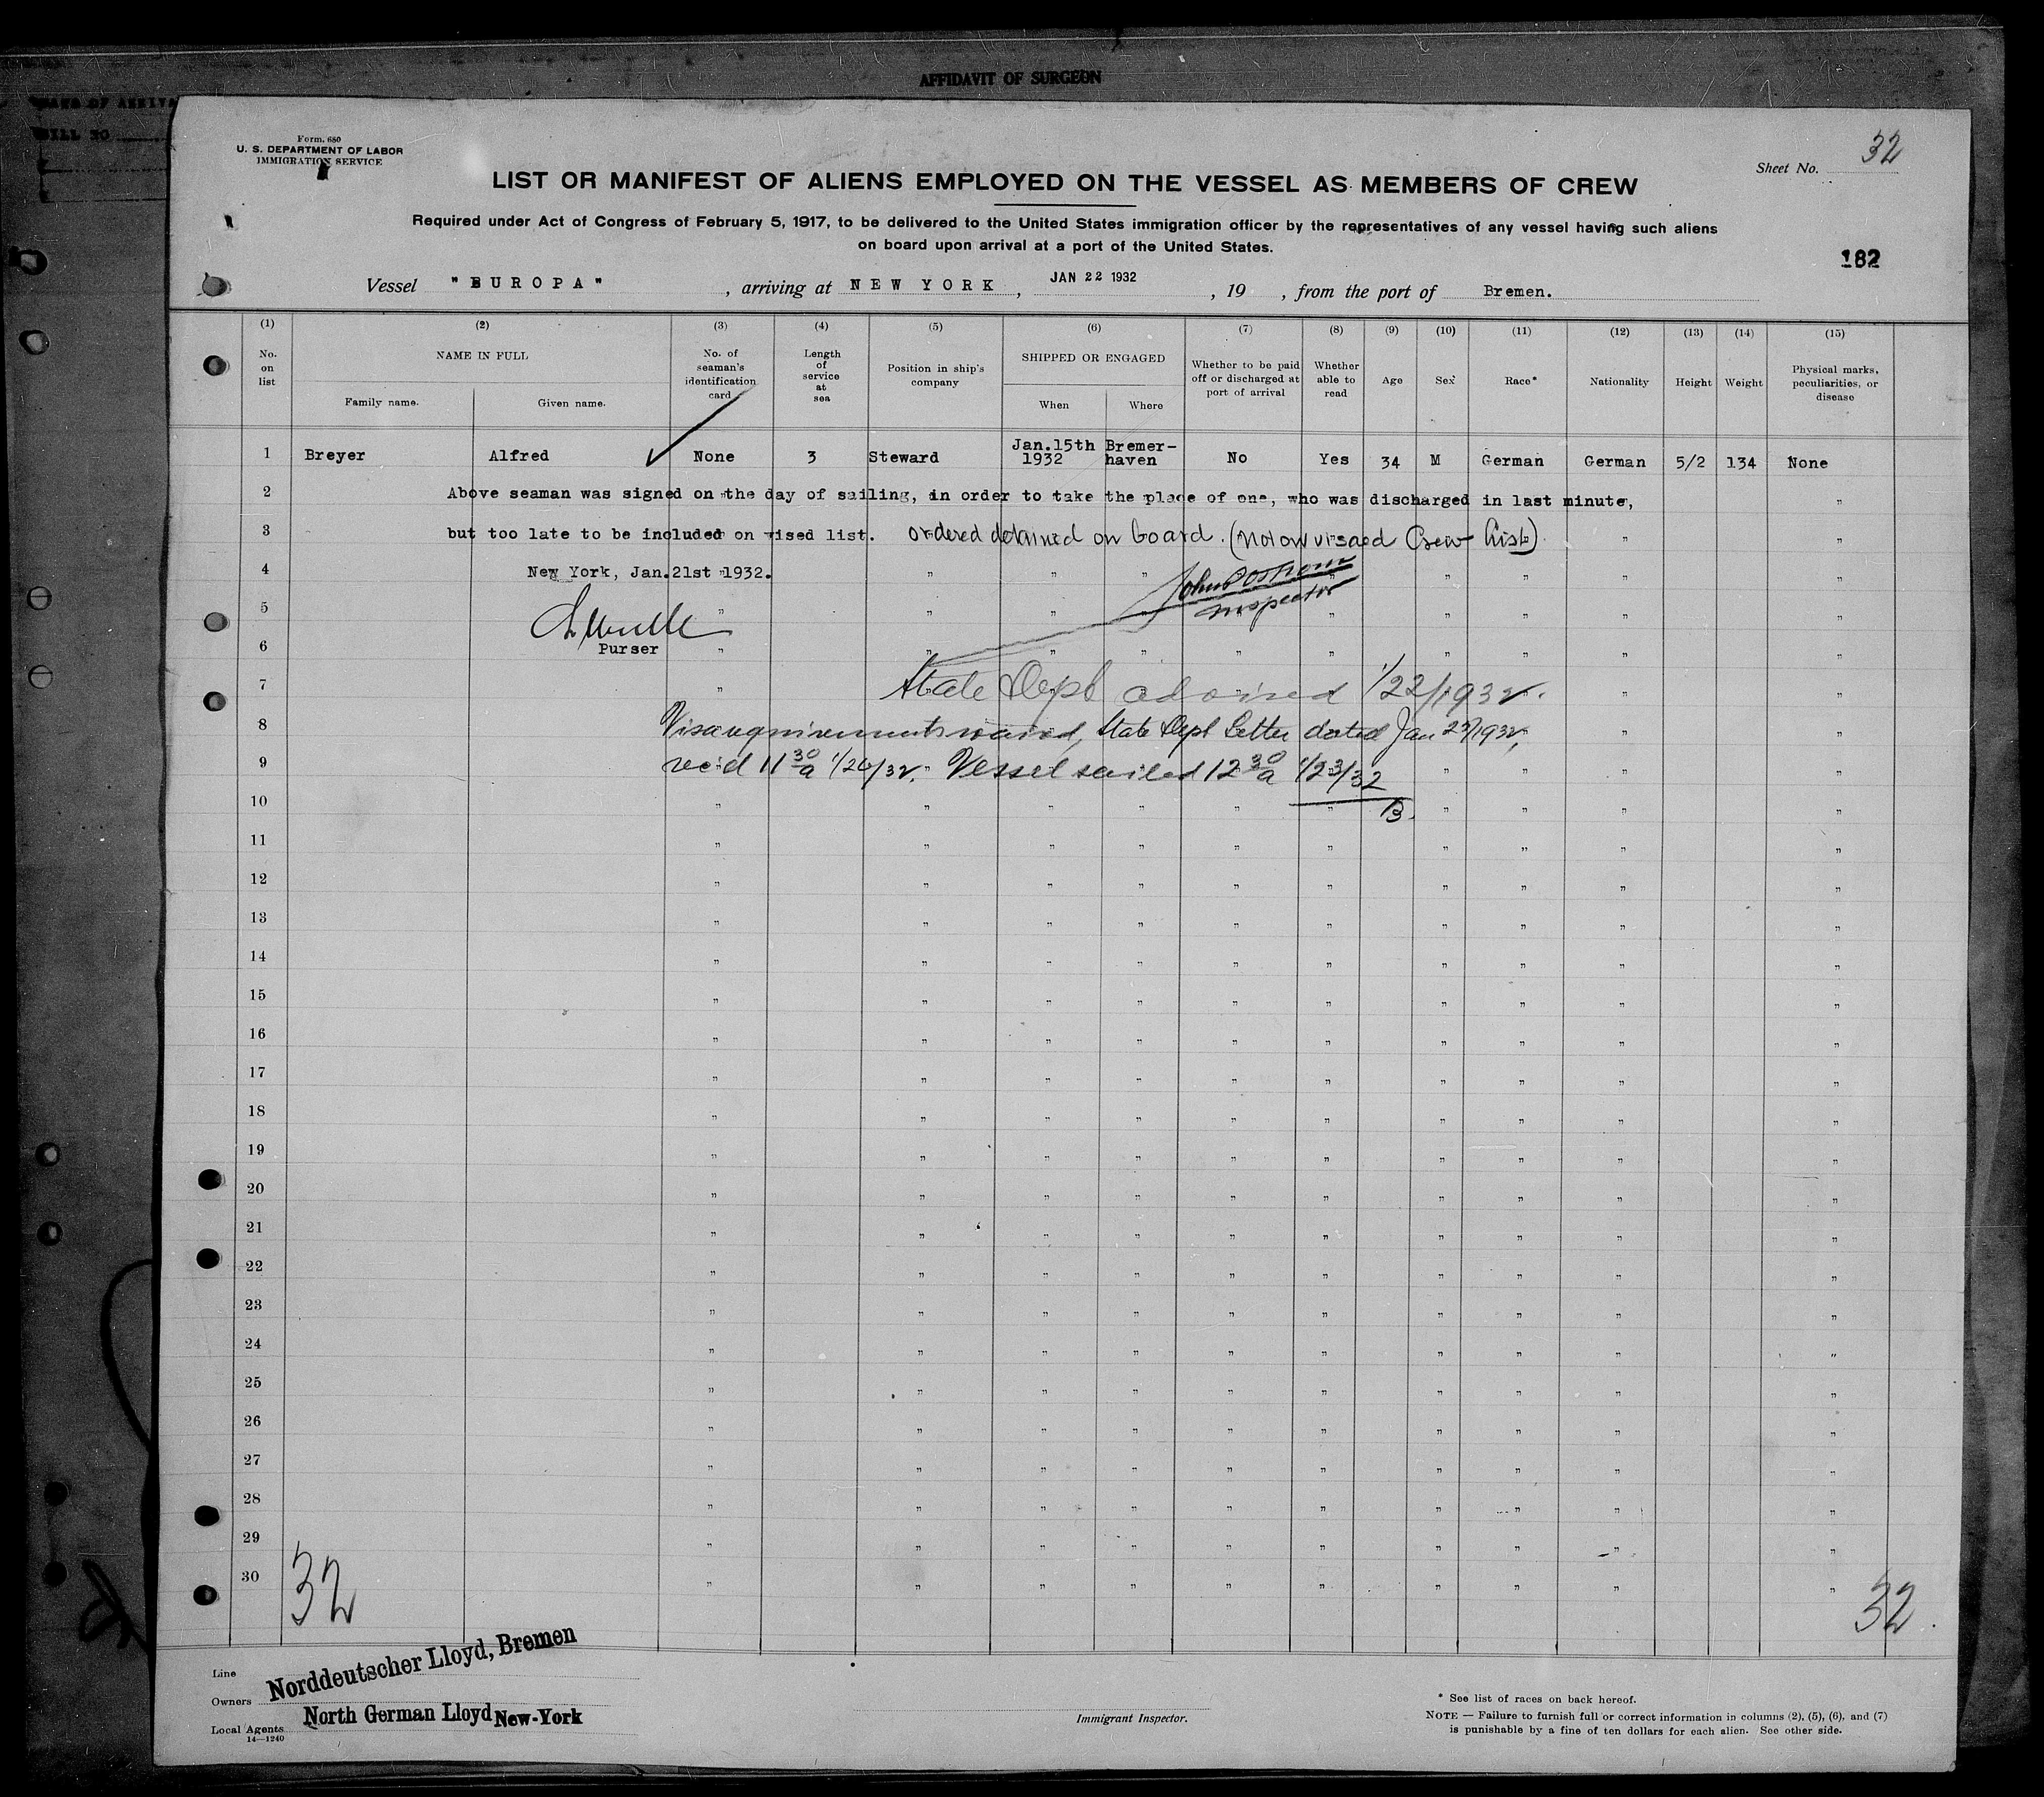 AFFIDAVIT OF SURGEON
Form 680
U. S. DEPARTMENT OF LABOR
IMMIGRATION SERVICE
Sheet No. 32
LIST OR MANIFEST OF ALIENS EMPLOYED ON THE VESSEL AS MEMBERS OF CREW
Required under Act of Congress of February 5, 1917, to be delivered to the United States immigration officer by the representatives of any vessel having such aliens
on board upon arrival at a port of the United States.
182
Vessel "EUROPA", arriving at NEW YORK, JAN 22 1932, 19 , from the port of Bremen.
(1) (2) (3) (4) (5) (6) (7) (8) (9) (10) (11) (12) (13) (14) (15)
No. on list
NAME IN FULL
Family name. Given name.
No. of seaman's identification card
Length of service at sea
Position in ship's company
SHIPPED OR ENGAGED
When Where
Whether to be paid off or discharged at port of arrival
Whether able to read
Age
Sex
Race*
Nationality
Height
Weight
Physical marks, peculiarities, or disease
1 Breyer Alfred None 3 Steward Jan.15th 1932 Bremerhaven No Yes 34 M German German 5/2 134 None
2 Above seaman was signed on the day of sailing, in order to take the place of one, who was discharged in last minute, "
3 but too late to be included on vised list. Ordered detained on board. (Not on visaed Crew List) " "
4 New York, Jan.21st 1932. " " " " " " " "
Inspector
5 " " " " " " " "
6 Purser " " " " " " " " " "
7 " State Dept advised 1/22/1932. " "
8 Visa requirements waived, State Dept Letter dated Jan 22/1932, " "
9 rec'd 11 30/a 1/26/32. Vessel sailed 12 30/a 1/23/32 " " " "
10 " " " " " " B. " " " "
11 " " " " " " " " " "
12 " " " " " " " " " "
13 " " " " " " " " " "
14 " " " " " " " " " "
15 " " " " " " " " " "
16 " " " " " " " " " "
17 " " " " " " " " " "
18 " " " " " " " " " "
19 " " " " " " " " " "
20 " " " " " " " " " "
21 " " " " " " " " " "
22 " " " " " " " " " "
23 " " " " " " " " " "
24 " " " " " " " " " "
25 " " " " " " " " " "
26 " " " " " " " " " "
27 " " " " " " " " " "
28 " " " " " " " " " "
29 " " " " " " " " " "
30 " " " " " " " " " "
32 32.
Line Norddeutscher Lloyd, Bremen
Owners
Local Agents North German Lloyd New-York
14—1240
Immigrant Inspector.
* See list of races on back hereof.
NOTE — Failure to furnish full or correct information in columns (2), (5), (6), and (7)
is punishable by a fine of ten dollars for each alien. See other side.